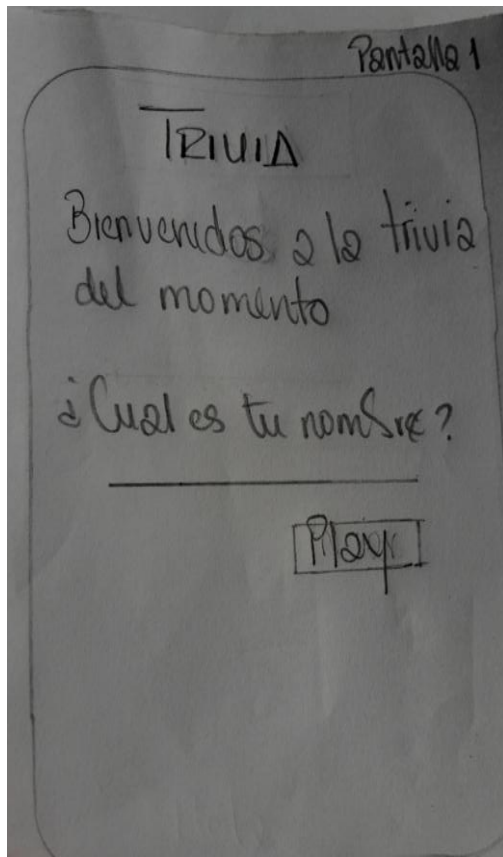 Pantalla 1
TRIVIA
Bienvenidos a la trivia
del momento
¿Cual es tu nombre?
Play